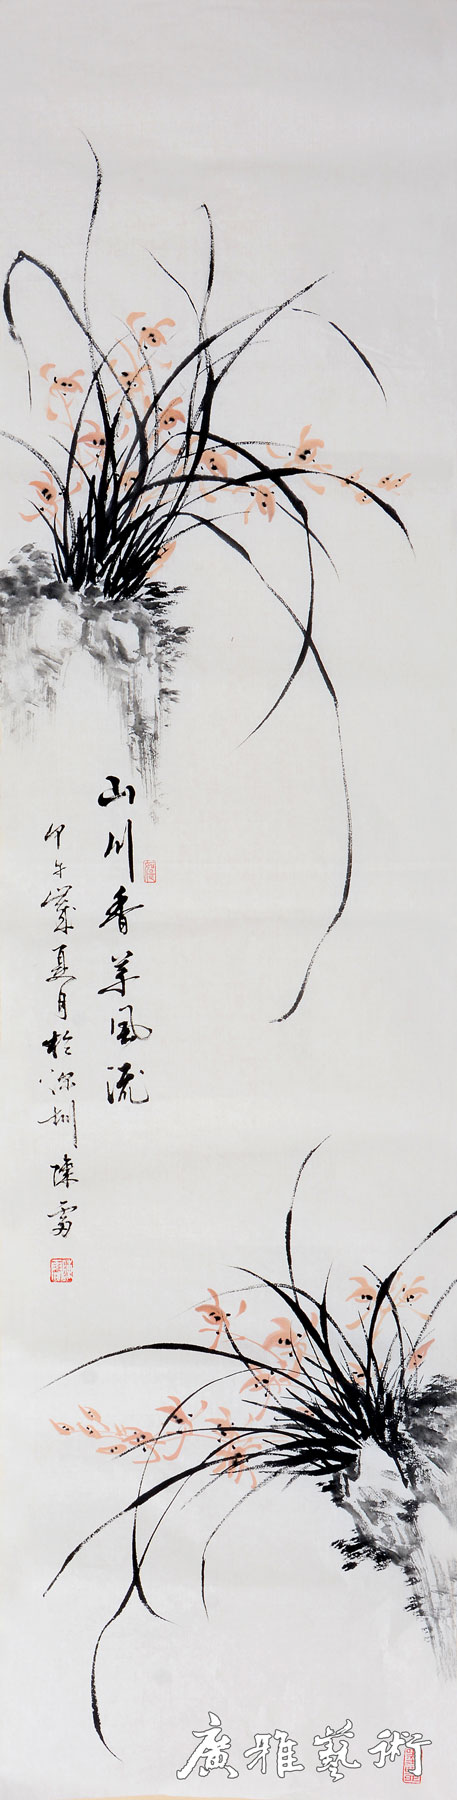 山川香草风流
甲午岁夏月於深圳 陳雪
廣雅藝術